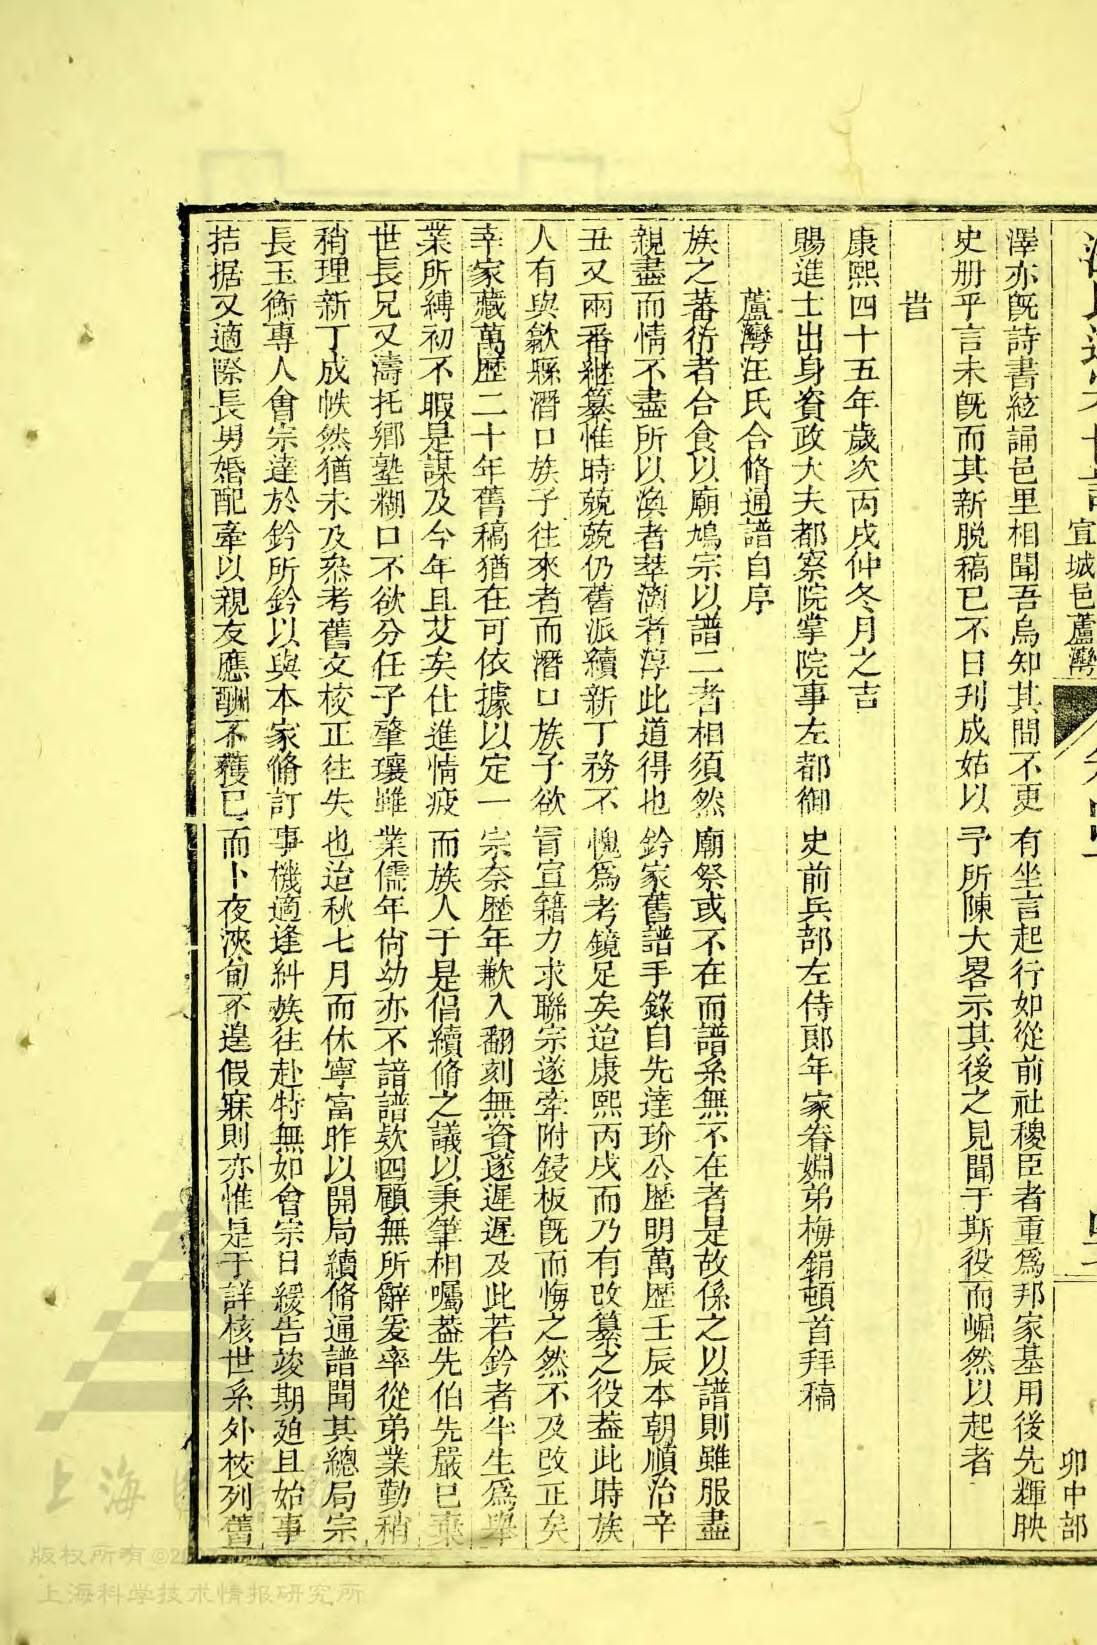 汪氏通宗世譜 宣城邑蘆灣 卷 四十 卯中部
澤亦旣詩書絃誦邑里相聞吾烏知其間不更有坐言起行如從前社稷臣者重爲邦家基用後先輝映
史册乎言未旣而其新脱稿已不日刋成姑以予所陳大畧示其後之見聞于斯役而崛然以起者
旹
康熙四十五年歲次丙戌仲冬月之吉
賜進士出身資政大夫都察院掌院事左都御史前兵部左侍郎年家眷姻弟梅鋗頓首拜稿
蘆灣汪氏合脩通譜自序
族之蕃衍者合食以廟鳩宗以譜二者相須然廟祭或不在而譜系無不在者是故係之以譜則雖服盡
親盡而情不盡所以渙者萃漓者淳此道得也鈐家舊譜手錄自先達玠公歷明萬歷壬辰本朝順治辛
丑又兩番繼纂惟時兢兢仍舊派續新丁務不愧爲考鏡足矣迨康熙丙戌而乃有改纂之役葢此時族
人有與歙縣潛口族子往來者而潛口族子欲冐宣籍力求聯宗遂牽附鋟板旣而悔之然不及改正矣
幸家藏萬歷二十年舊稿猶在可依據以定一宗奈歷年歉入翻刻無資遂遲遲及此若鈐者半生爲舉
業所縛初不暇是謀及今年且艾矣仕進情疲而族人于是倡續脩之議以秉筆相囑葢先伯先嚴已棄
世長兄又濤托鄉塾糊口不欲分任子肇瓖雖業儒年尚幼亦不諳譜欵四顧無所辭爰率從弟業勤稍
稍理新丁成帙然猶未及叅考舊文校正往失也迨秋七月而休寧富昨以開局續脩通譜聞其總局宗
長玉衡專人會宗達於鈐所鈐以與本家脩訂事機適逢糾族往赴特無如會宗日緩告竣期廹且始事
拮据又適際長男婚配牽以親友應酬不獲已而卜夜浹旬不遑假寐則亦惟是于詳核世系外校列舊
上海圖書館
版权所有
上海科学技术情报研究所